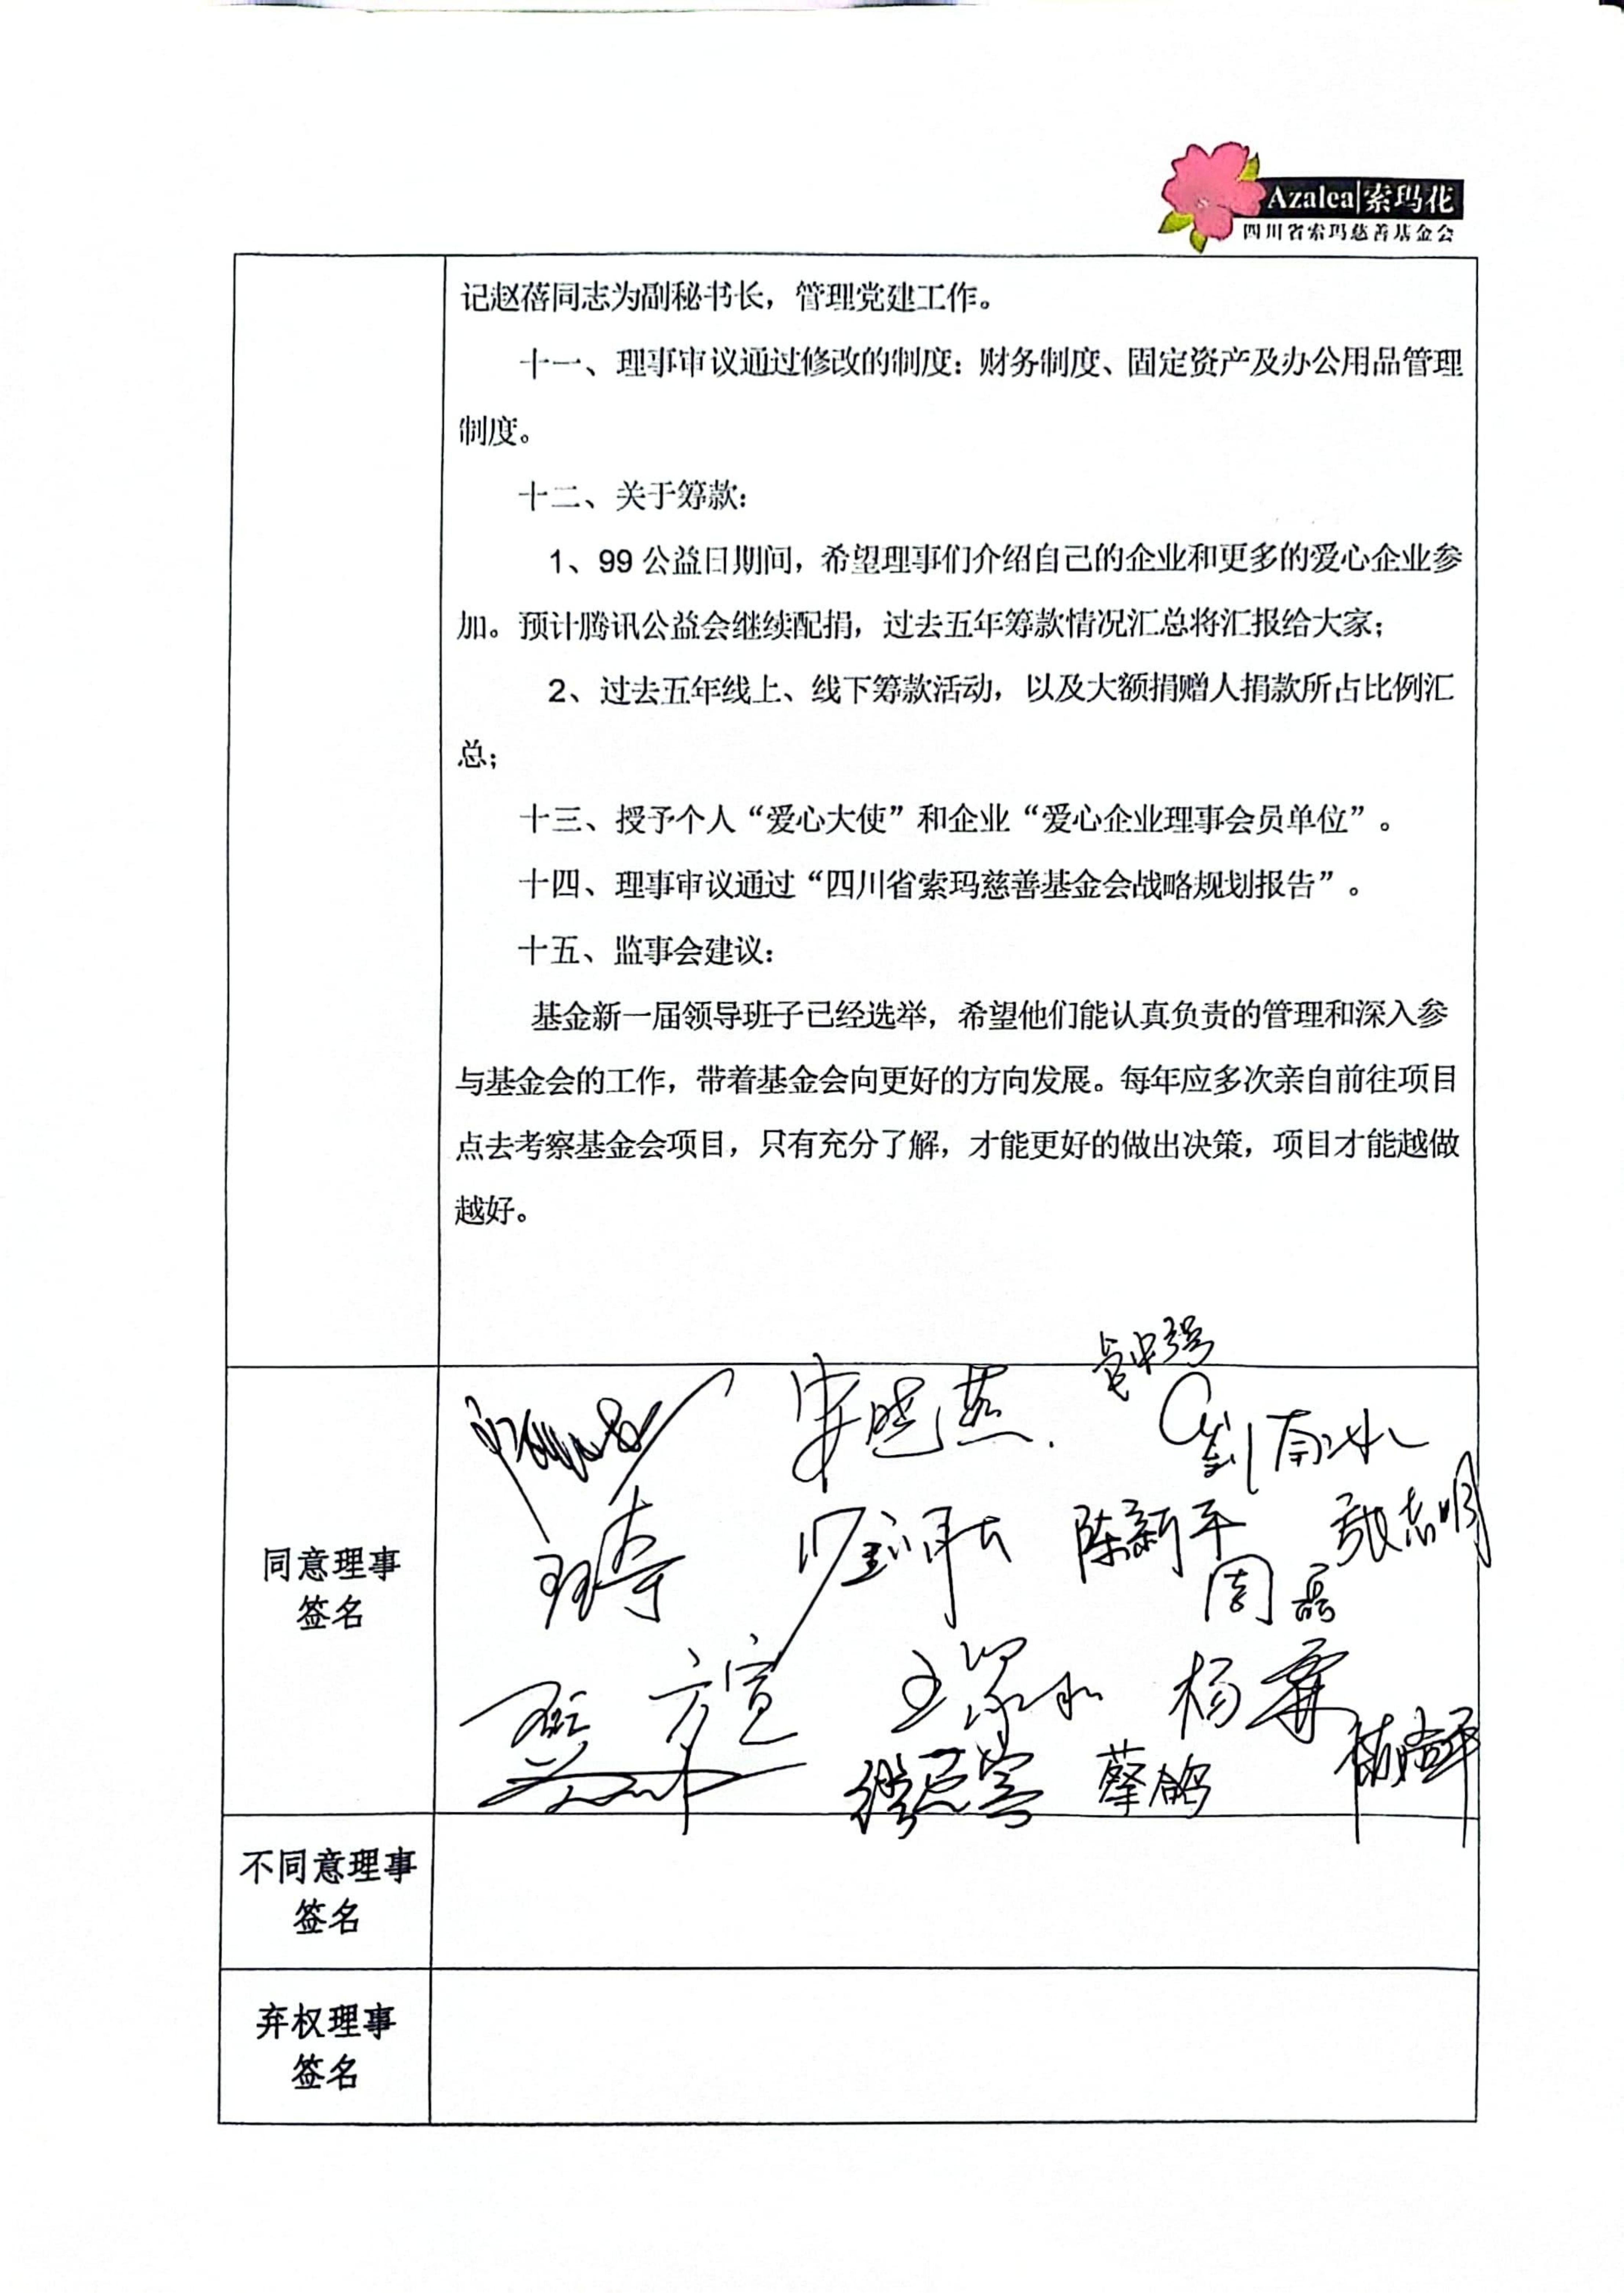 Azalea|索玛花
四川省索玛慈善基金会
记赵蓓同志为副秘书长，管理党建工作。
十一、理事审议通过修改的制度：财务制度、固定资产及办公用品管理
制度。
十二、关于筹款：
1、99 公益日期间，希望理事们介绍自己的企业和更多的爱心企业参
加。预计腾讯公益会继续配捐，过去五年筹款情况汇总将汇报给大家；
2、过去五年线上、线下筹款活动，以及大额捐赠人捐款所占比例汇
总；
十三、授予个人“爱心大使”和企业“爱心企业理事会员单位”。
十四、理事审议通过“四川省索玛慈善基金会战略规划报告”。
十五、监事会建议：
基金新一届领导班子已经选举，希望他们能认真负责的管理和深入参
与基金会的工作，带着基金会向更好的方向发展。每年应多次亲自前往项目
点去考察基金会项目，只有充分了解，才能更好的做出决策，项目才能越做
越好。
同意理事
签名
刘南冰
陈新平 张志明
周磊
方宣 杨霖
蔡鸽
不同意理事
签名
弃权理事
签名